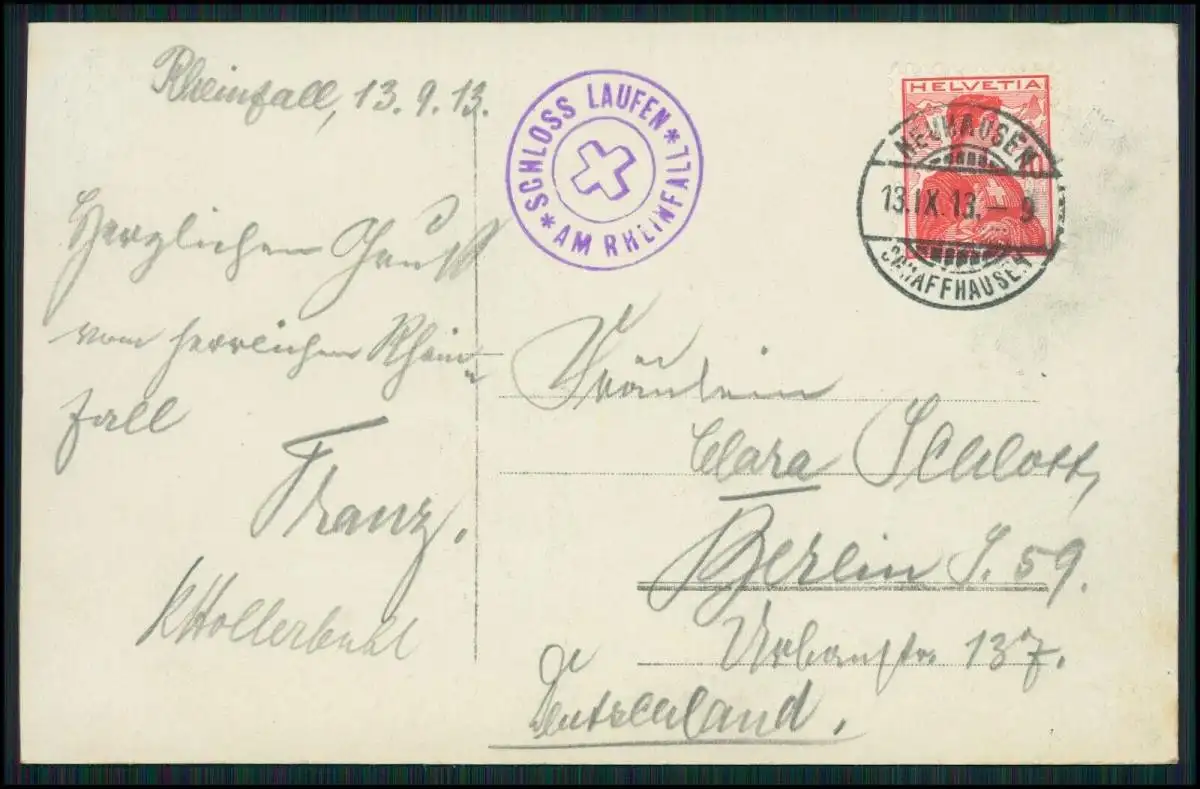 Rheinfall, 13.9.13.
Herzlichen Gruß
vom herrlichen Rhein-
fall
Franz.
SCHLOSS LAUFEN
* AM RHEINFALL *
HELVETIA
10
NEUHAUSEN
13.IX.13. — 9
SCHAFFHAUSEN
Fräulein
Clara Schlott,
Berlin S. 59.
Urbanstr. 137.
Deutschland.